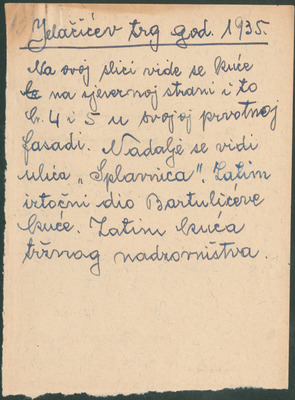 Jelačićev trg god. 1935.
Na ovoj slici vide se kuće
na sjevernoj strani i to
br. 4 i 5 u svojoj prvotnoj
fasadi. Nadalje se vidi
ulica „Splavnica". Zatim
istočni dio Bartulićeve
kuće. Zatim kuća
tržnog nadzorništva.